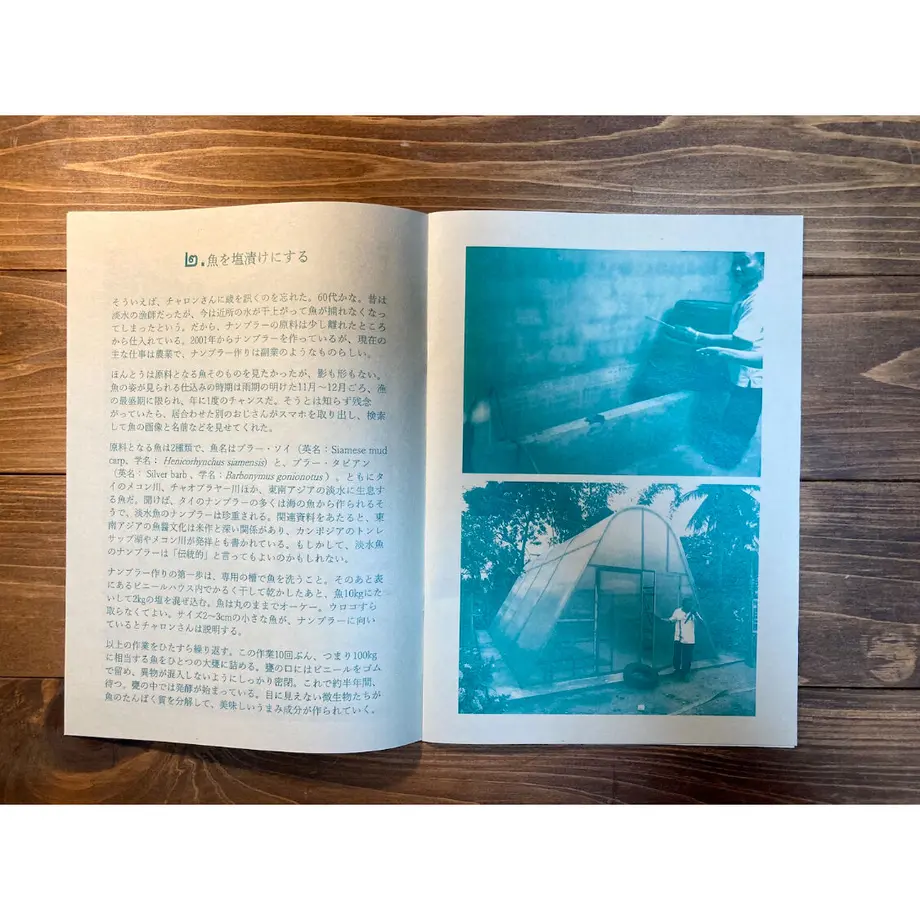 ๒.魚を塩漬けにする
そういえば、チャロンさんに歳を訊くのを忘れた。60代かな。昔は
淡水の漁師だったが、今は近所の水が干上がって魚が捕れなくなっ
てしまったという。だから、ナンプラーの原料は少し離れたところ
から仕入れている。2001年からナンプラーを作っているが、現在の
主な仕事は農業で、ナンプラー作りは副業のようなものらしい。
ほんとうは原料となる魚そのものを見たかったが、影も形もない。
魚の姿が見られる仕込みの時期は雨期の明けた11月〜12月ごろ、漁
の最盛期に限られ、年に1度のチャンスだ。そうとは知らず残念
がっていたら、居合わせた別のおじさんがスマホを取り出し、検索
して魚の画像と名前などを見せてくれた。
原料となる魚は2種類で、魚名はプラー・ソイ（英名：Siamese mud
carp、学名：Henicorhynchus siamensis）と、プラー・タピアン
（英名：Silver barb 、学名：Barbonymus gonionotus）。ともにタ
イのメコン川、チャオプラヤー川ほか、東南アジアの淡水に生息す
る魚だ。聞けば、タイのナンプラーの多くは海の魚から作られるそ
うで、淡水魚のナンプラーは珍重される。関連資料をあたると、東
南アジアの魚醤文化は米作と深い関係があり、カンボジアのトンレ
サップ湖やメコン川が発祥とも書かれている。もしかして、淡水魚
のナンプラーは「伝統的」と言ってもよいのかもしれない。
ナンプラー作りの第一歩は、専用の柵で魚を洗うこと。そのあと表
にあるビニールハウス内でかるく干して乾かしたあと、魚10kgにた
いして2kgの塩を混ぜ込む。魚は丸のままでオーケー。ウロコすら
取らなくてよい。サイズ2〜3cmの小さな魚が、ナンプラーに向い
ているとチャロンさんは説明する。
以上の作業をひたすら繰り返す。この作業10回ぶん、つまり100kg
に相当する魚をひとつの大甕に詰める。甕の口にはビニールをゴム
で留め、異物が混入しないようにしっかり密閉。これで約半年間、
待つ。甕の中では発酵が始まっている。目に見えない微生物たちが
魚のたんぱく質を分解して、美味しいうまみ成分が作られていく。